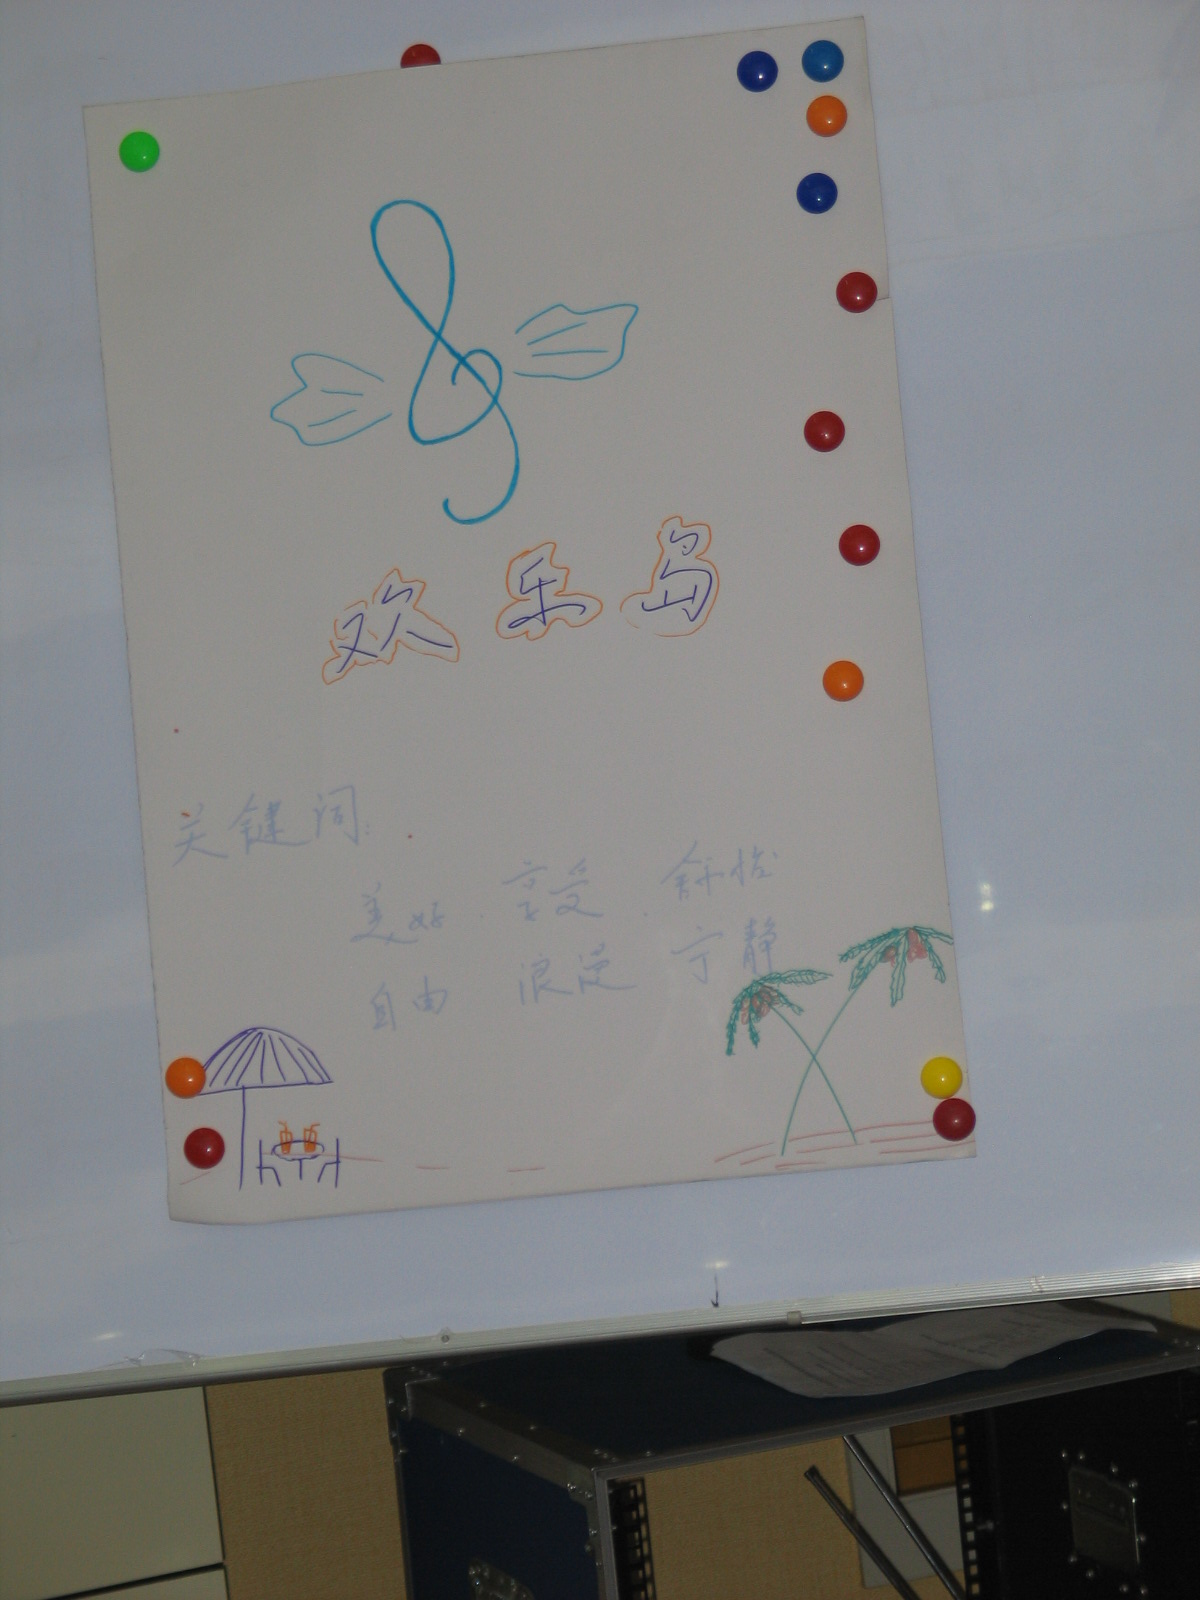 欢乐岛
关键词:
美好、享受、舒怡
自由 浪漫 宁静